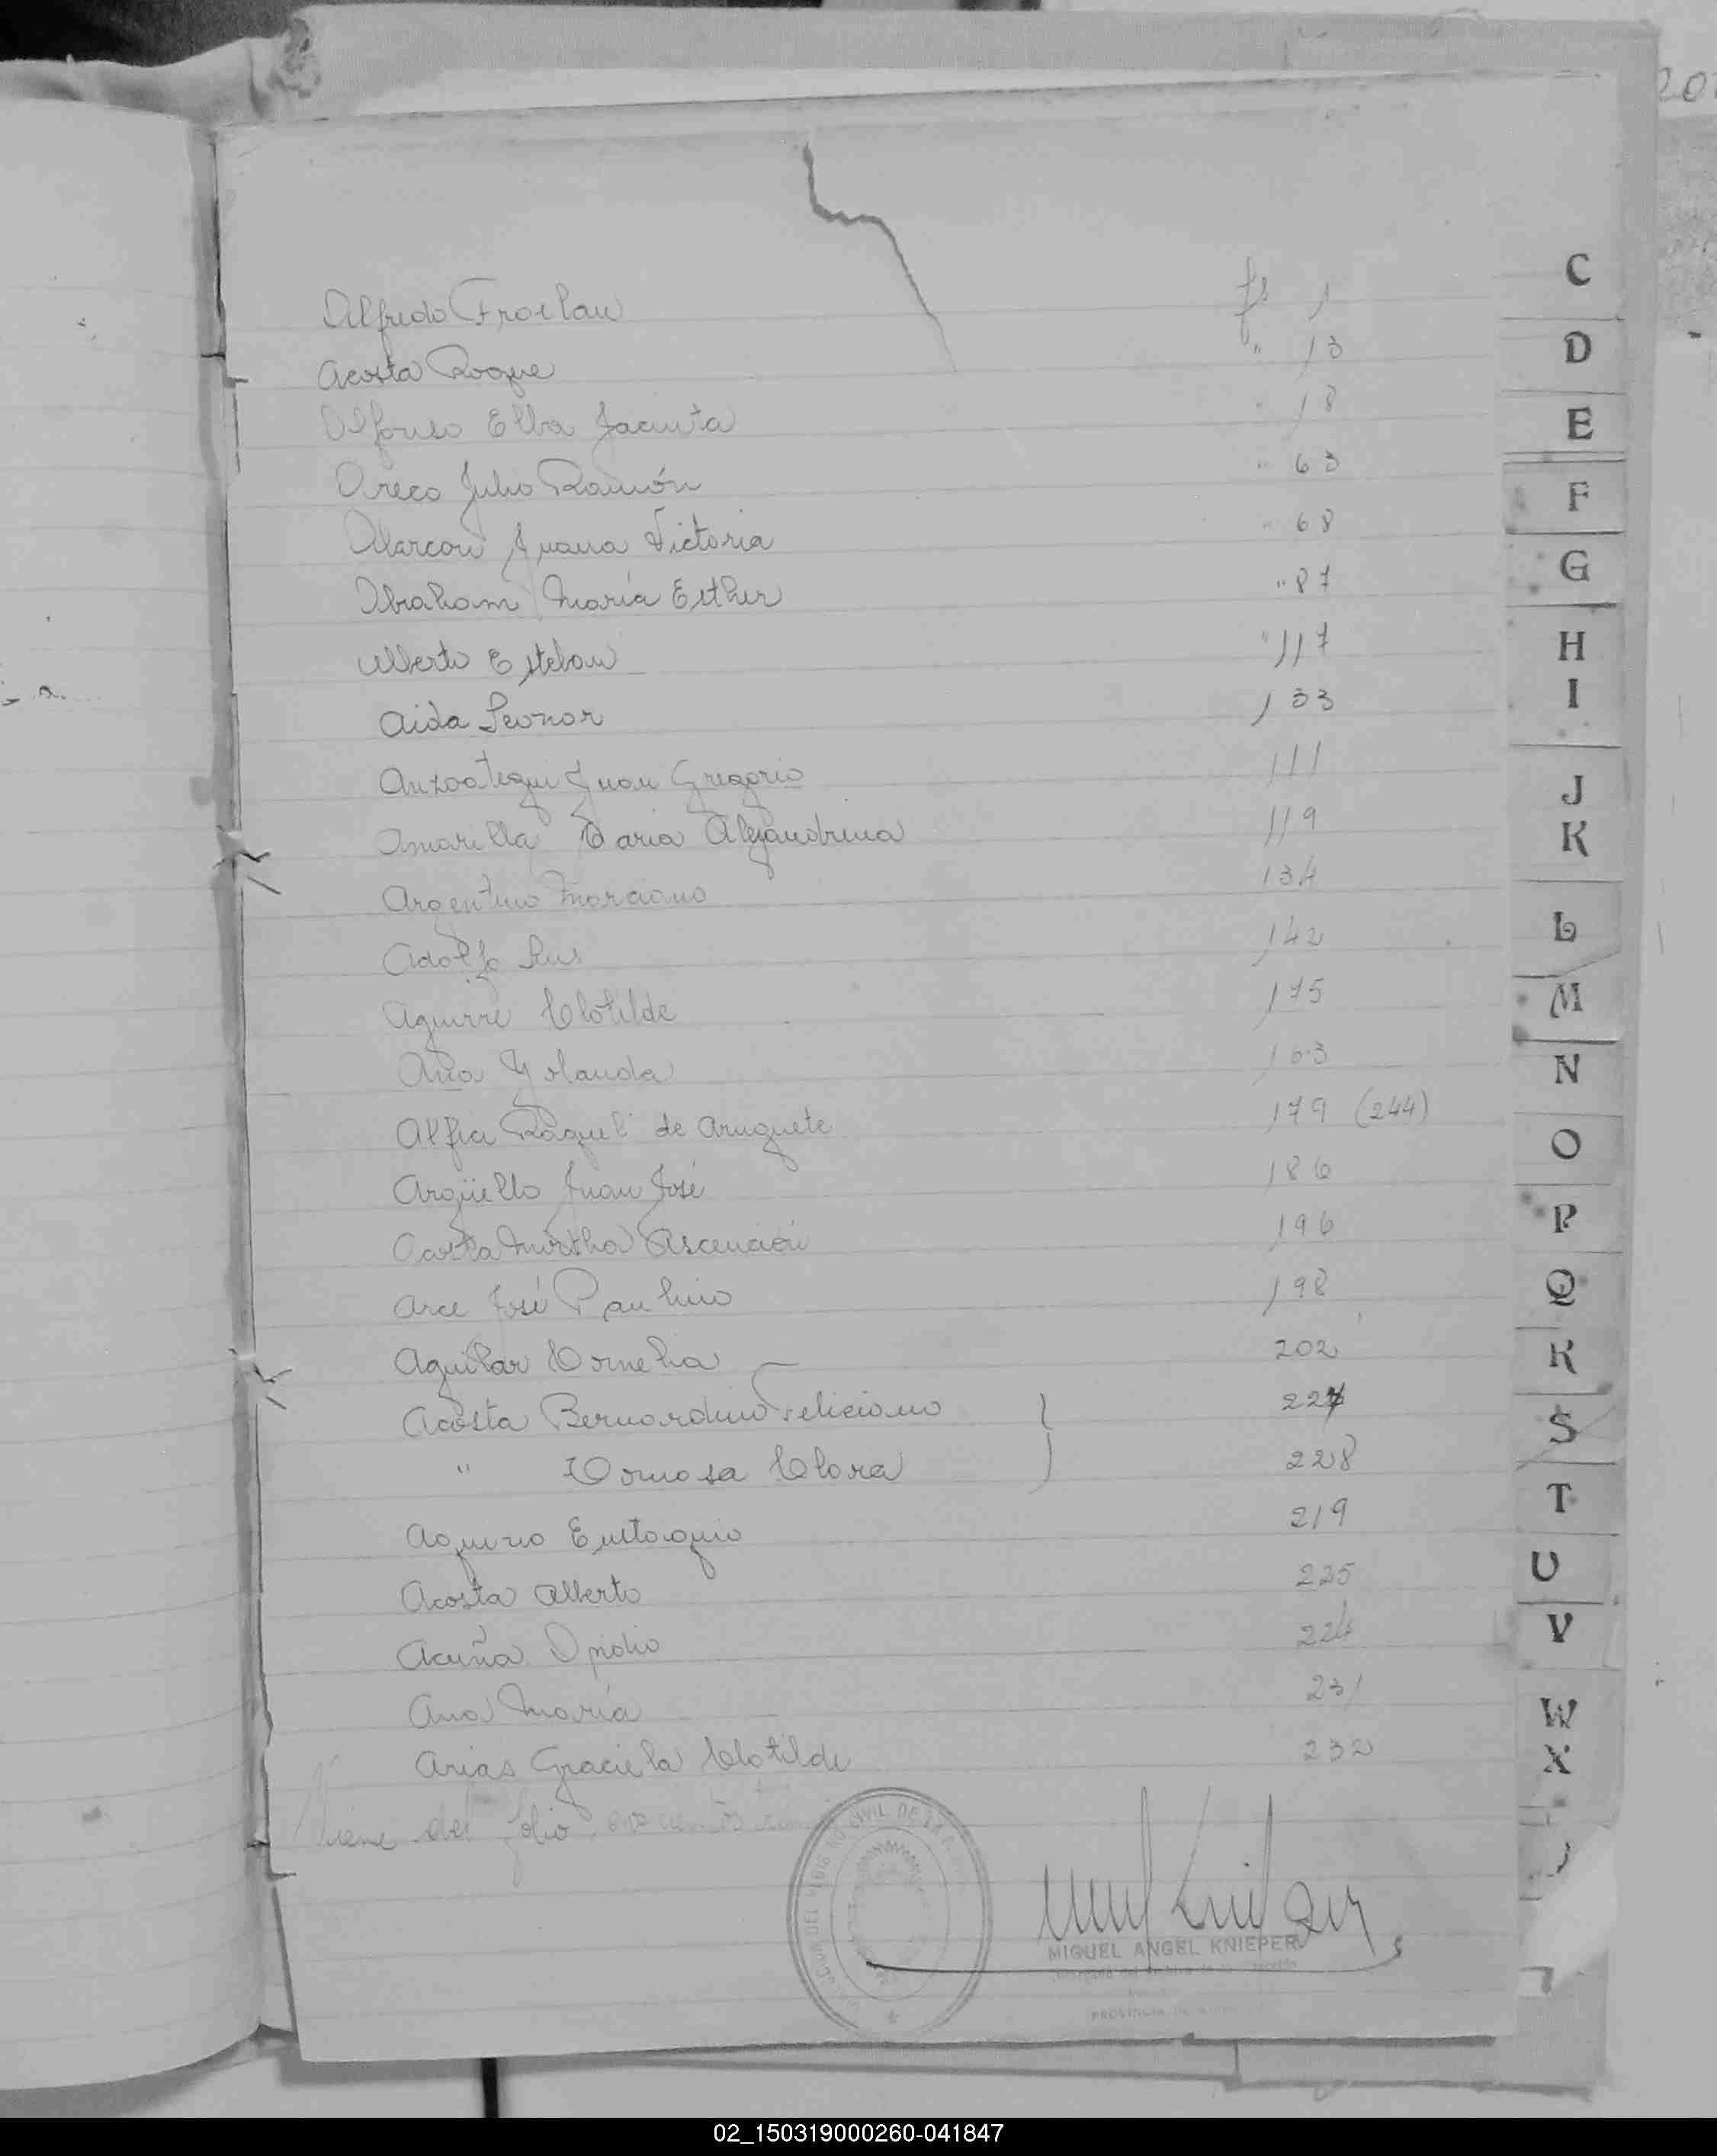 Alfredo Froilan fs 1
Acosta Roque " 13
Alfonso Elba Jacinta " 18
Areco Julio Ramón " 63
Alarcon Juana Victoria " 68
Abraham María Esther " 87
Alberto Esteban " 117
Aida Leonor 133
Anzoategui Juan Gregorio 111
Amarilla Maria Alejandrina 119
Argentino Marciano 134
Adolfo Luis 142
Aguirre Clotilde 175
Ana Yolanda 163
Alfia Raquel de Aruguete 179 (244)
Argüello Juan José 186
Acosta Mirtha Ascención 196
Arce José Paulino 198
Aguilar Cornelia 202
Acosta Bernardino Feliciano 227
" Clara 228
Aquino Eustaquio 219
Acosta Alberto 225
Acuña 224
Ana María 231
Arias Graciela Clotilde 232
Viene del folio
CIVIL DE LA
MIGUEL ANGEL KNIEPER
PROVINCIA DE
C
D
E
F
G
H
I
J
K
L
M
N
O
P
Q
R
S
T
U
V
W
X
02_150319000260-041847